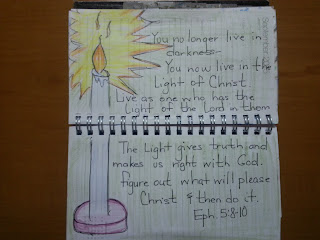 You no longer live in
darkness
You now live in the
Light of Christ.
Live as one who has the
Light of the Lord in them
The Light gives truth and
makes us right with God.
figure out what will please
Christ & then do it.
Eph. 5:8-10